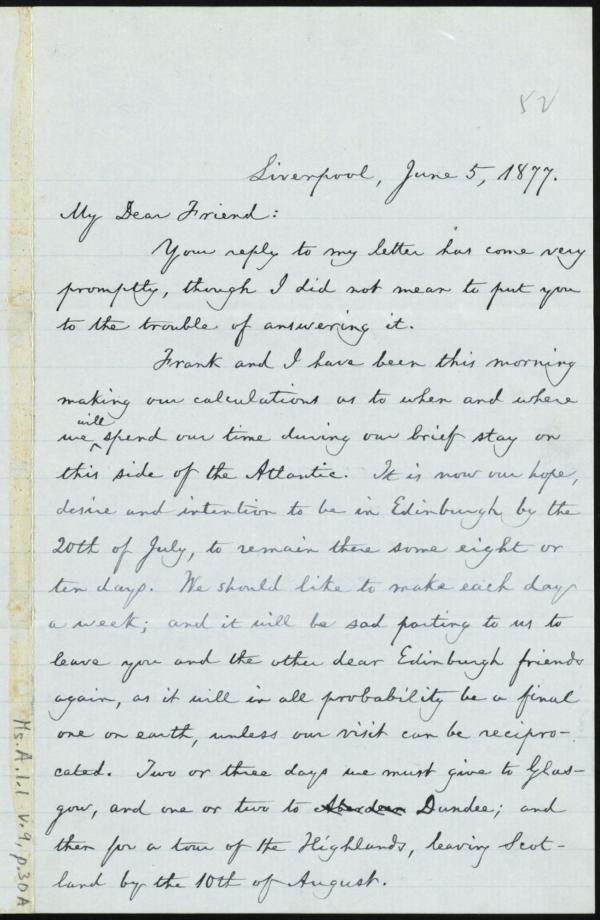 52
Liverpool, June 5, 1877.
My Dear Friend:
Your reply to my letter has come very
promptly, though I did not mean to put you
to the trouble of answering it.
Frank and I have been this morning
making our calculations as to when and where
will
we ‸ spend our time during our brief stay on
this side of the Atlantic. It is now our hope,
desire and intention to be in Edinburgh by the
20th of July, to remain there some eight or
ten days. We should like to make each day
a week; and it will be sad parting to us to
leave you and the other dear Edinburgh friends
again, as it will in all probability be a final
one on earth, unless our visit can be recipro-
cated. Two or three days we must give to Glas-
gow, and one or two to Aberdeen Dundee; and
then for a tour of the Highlands, leaving Scot-
land by the 10th of August.
Ms. A. 1. 1 v. 9, p. 30 A